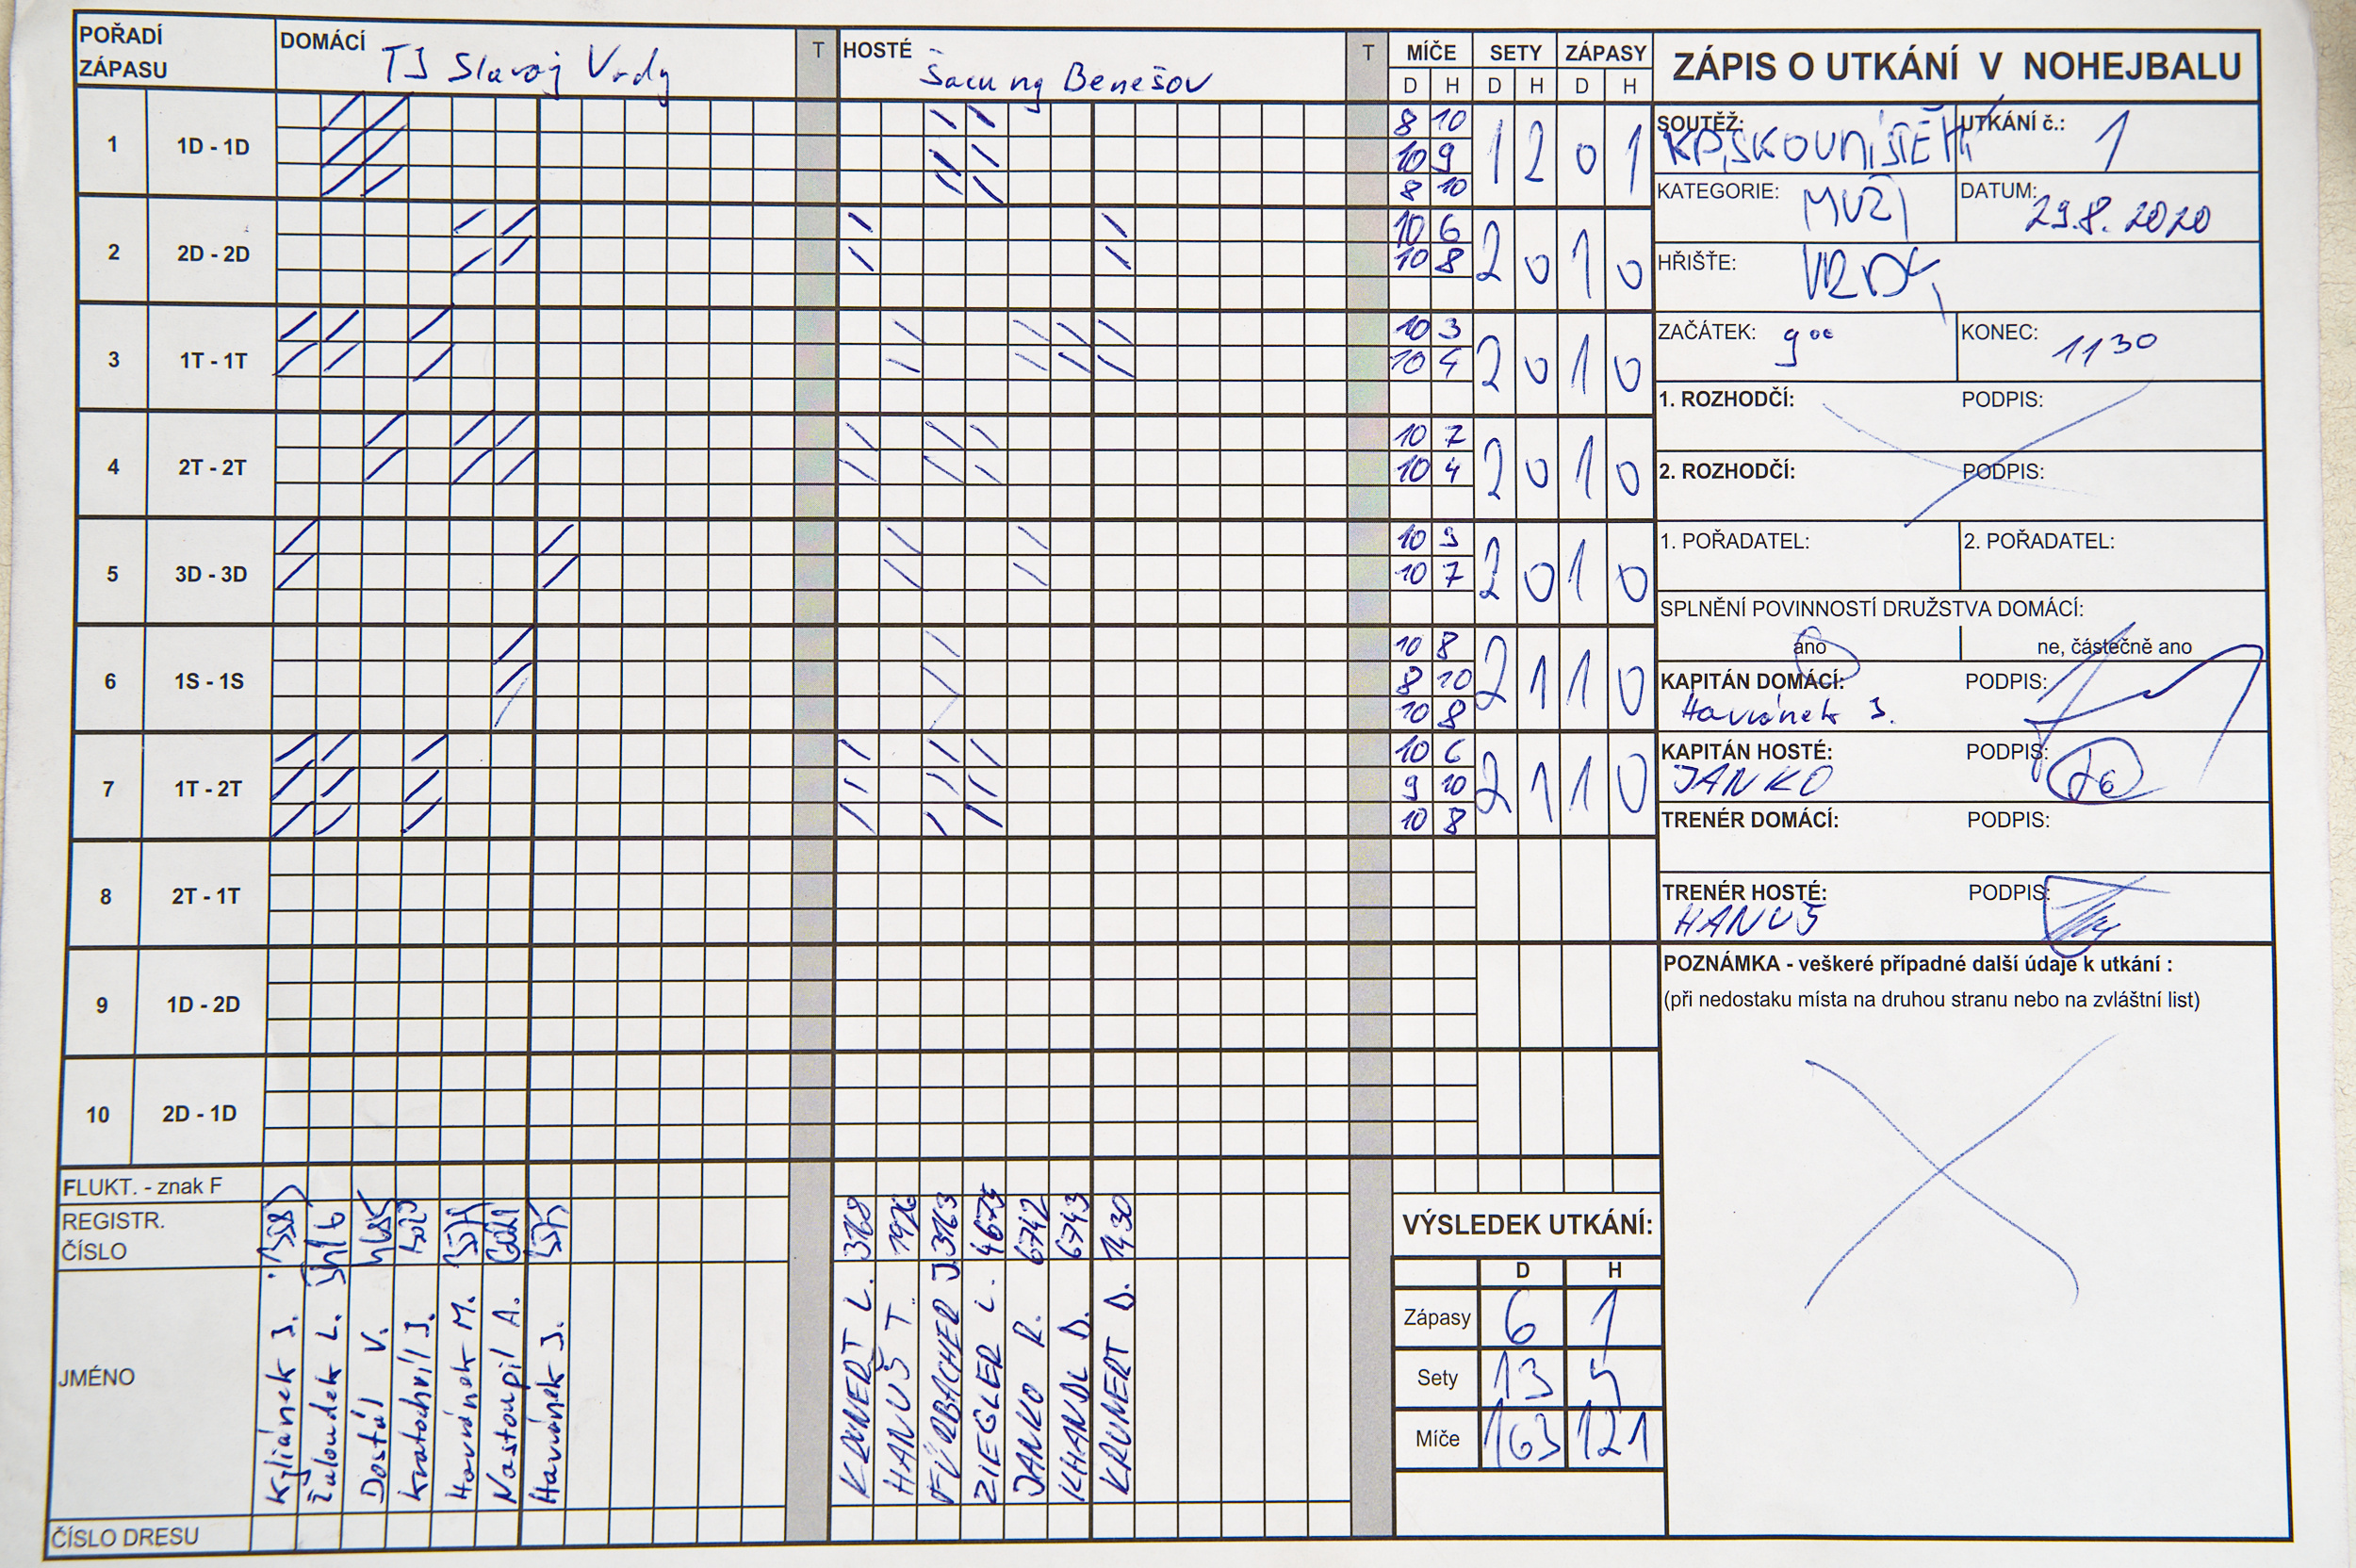 POŘADÍ ZÁPASU
DOMÁCÍ TJ Slavoj Vrdy
T
HOSTÉ Šacung Benešov
T
MÍČE SETY ZÁPASY
D H D H D H
ZÁPIS O UTKÁNÍ V NOHEJBALU
1 1D - 1D 8 10 1 2 0 1
10 9
8 10
2 2D - 2D 10 6 2 0 1 0
10 8
3 1T - 1T 10 3 2 0 1 0
10 4
4 2T - 2T 10 7 2 0 1 0
10 4
5 3D - 3D 10 3 2 0 1 0
10 7
6 1S - 1S 10 8 2 1 1 0
8 10
10 8
7 1T - 2T 10 6 2 1 1 0
9 10
10 8
8 2T - 1T
9 1D - 2D
10 2D - 1D
FLUKT. - znak F
REGISTR. ČÍSLO
3168 1926 3163 4675 6742 6743 1430
JMÉNO
Kyliánek J.
Žaloudek L.
Dostál V.
Kratochvíl J.
Havránek M.
Nastoupil A.
Havránek J.
KRUNERT L.
HANUŠ T.
FÜRBACHER J.
ZIEGLER L.
JANKO R.
KHANDL D.
KRUNERT D.
ČÍSLO DRESU
SOUTĚŽ:
UTKÁNÍ č.: 1
KATEGORIE: MUŽI
DATUM: 29.8. 2020
HŘIŠTĚ: VRDY
ZAČÁTEK: 9 00
KONEC: 11 30
1. ROZHODČÍ: PODPIS:
2. ROZHODČÍ: PODPIS:
1. POŘADATEL: 2. POŘADATEL:
SPLNĚNÍ POVINNOSTÍ DRUŽSTVA DOMÁCÍ:
ano ne, částečně ano
KAPITÁN DOMÁCÍ: PODPIS:
Havránek J.
KAPITÁN HOSTÉ: PODPIS:
JANKO
TRENÉR DOMÁCÍ: PODPIS:
TRENÉR HOSTÉ: PODPIS:
HANUŠ
POZNÁMKA - veškeré případné další údaje k utkání :
(při nedostaku místa na druhou stranu nebo na zvláštní list)
VÝSLEDEK UTKÁNÍ:
D H
Zápasy 6 1
Sety 13 4
Míče 163 121